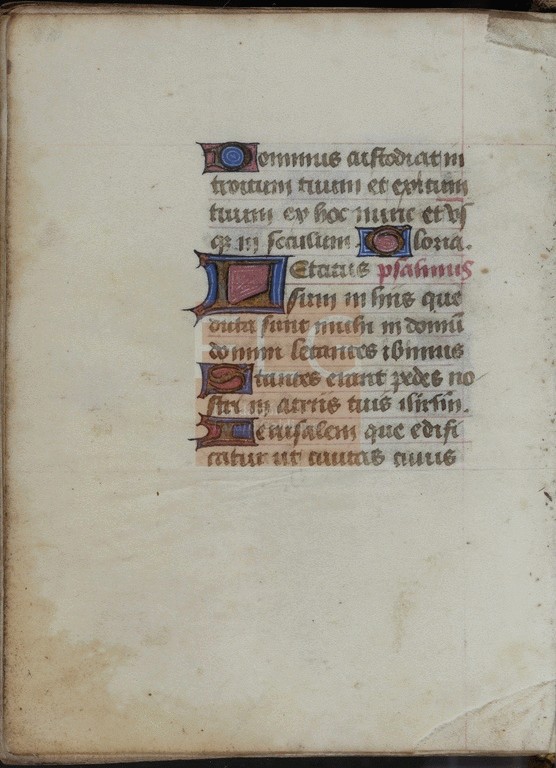 Dominus custodiat in
troitum tuum et exitum
tuum ex hoc nunc et vs
q3 in seculum. Gloria.
Letatus psalmus
sum in hiis que
dicta sunt michi in domū
domini letantes ibimus
Stantes erant pedes no
stri in atriis tuis ihrlm.
Jerusalem que edifi
catur ut ciuitas cuius